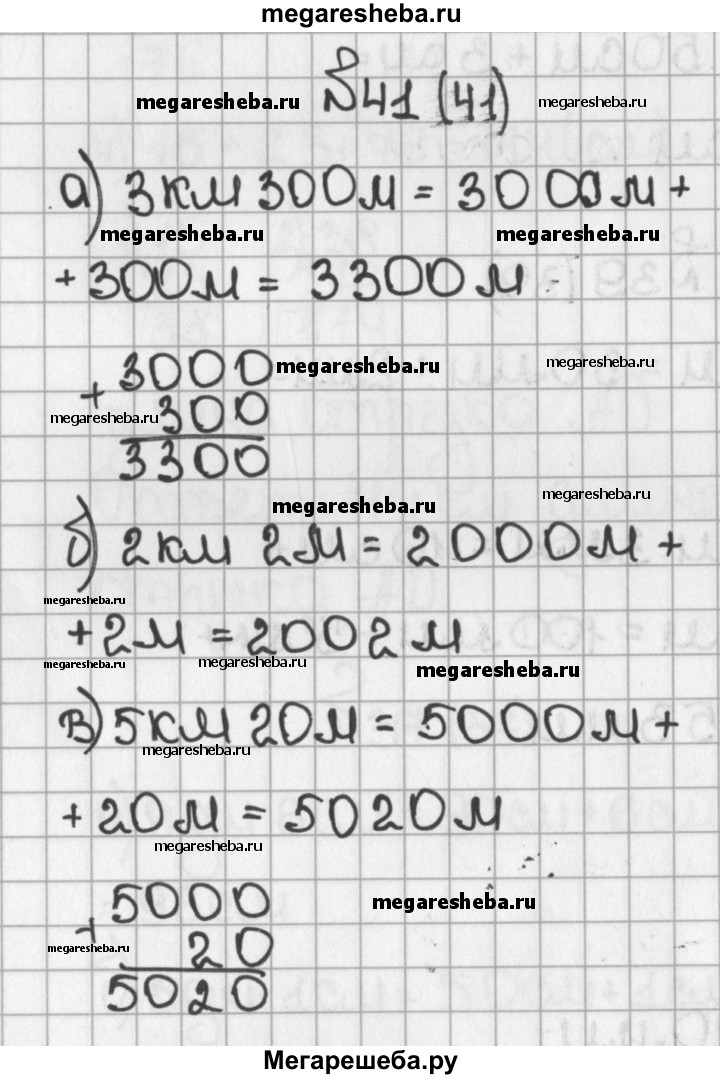 megaresheba.ru
№41 (41)
megaresheba.ru megaresheba.ru
а) 3 км 300 м = 3000 м +
megaresheba.ru megaresheba.ru
+ 300 м = 3300 м
3000
megaresheba.ru megaresheba.ru
+
megaresheba.ru 300
3300
megaresheba.ru megaresheba.ru
б) 2 км 2 м = 2000 м +
megaresheba.ru
+ 2 м = 2002 м
megaresheba.ru megaresheba.ru megaresheba.ru
в) 5 км 20 м = 5000 м +
megaresheba.ru
+ 20 м = 5020 м
megaresheba.ru
5000 megaresheba.ru
+
megaresheba.ru 20
5020
Мегарешеба.ру